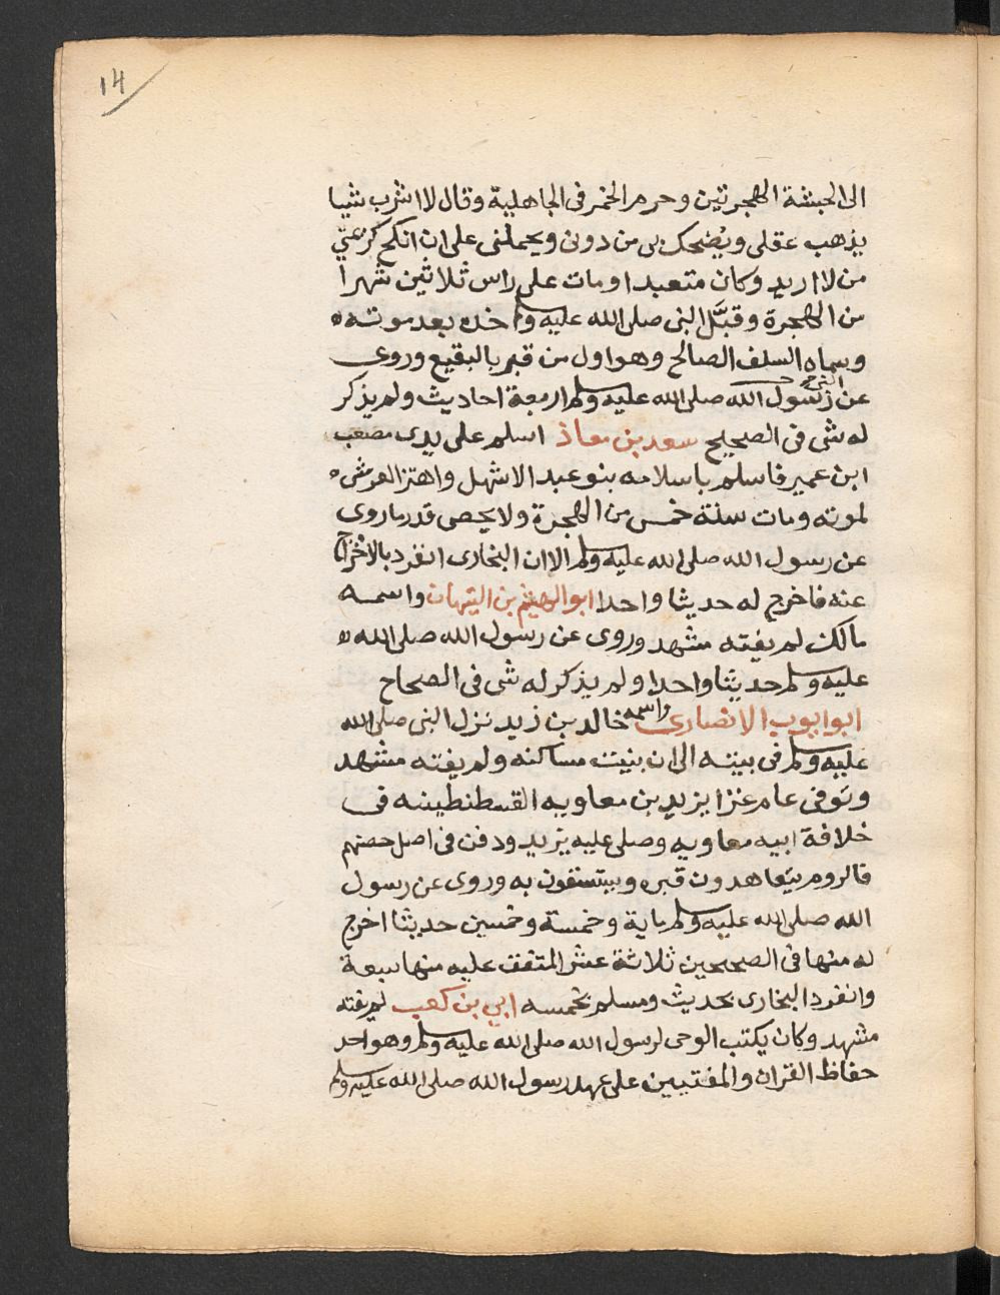 14
الى الحبشة الهجرتين وحرم الخمر فى الجاهلية وقال لا اشرب شيا
يذهب عقلى ويُضحك بى من دونى ويحملنى على ان انكح كريمتى
من لا اريد وكان متعبدا ومات على راس ثلاثين شهرا
من الهجرة وقبَّل النبى صلى الله عليه وسلم خده بعد موته
وسماه السلف الصالح وهو اول من قبر بالبقيع وروى
عن رسول الله صلى الله عليه وسلم اربعة احاديث ولم يذكر
له شى فى الصحيح سعد بن معاذ اسلم على يدى مصعب
ابن عمير فاسلم باسلامه بنو عبد الاشهل واهتز العرش
لموته ومات سنة خمس من الهجرة ولا يحصى قدر ما روى
عن رسول الله صلى الله عليه وسلم الا ان البخارى انفرد بالاخراج
عنه فاخرج له حديثا واحدا ابو الهيثم بن التيهان واسمه
مالك لم يفته مشهد وروى عن رسول الله صلى الله
عليه وسلم حديثا واحدا ولم يذكر له شى فى الصحاح
ابو ايوب الانصارى واسمه خالد بن زيد نزل النبى صلى الله
عليه وسلم فى بيته الى ان بنيت مساكنه ولم يفته مشهد
وتوفى عام غزا يزيد بن معاويه القسطنطينه فى
خلافة ابيه معاويه وصلى عليه يزيد ودفن فى اصل حصنهم
فالروم يتعاهدون قبره ويستسقون به وروى عن رسول
الله صلى الله عليه وسلم ماية وخمسة وخمسين حديثا اخرج
له منها فى الصحيحين ثلاثة عشر المتفق عليه منها سبعة
وانفرد البخارى بحديث ومسلم بخمسه ابي بن كعب لم يفته
مشهد وكان يكتب الوحى لرسول الله صلى الله عليه وسلم وهو احد
حفاظ القران والمفتيين على عهد رسول الله صلى الله عليه وسلم